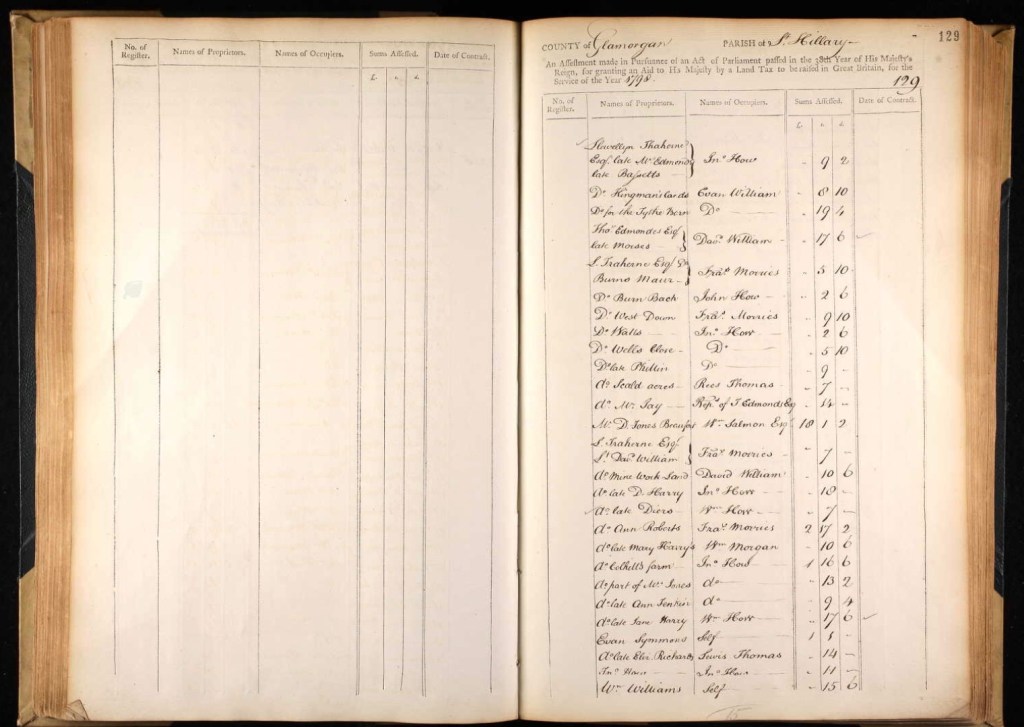 No. of Register. Names of Proprietors. Names of Occupiers. Sums Assessed. Date of Contract.
£. s. d.
129
COUNTY of Glamorgan PARISH of St. Hillary
An Assessment made in Pursuance of an Act of Parliament passed in the 38th Year of His Majesty's
Reign, for granting an Aid to His Majesty by a Land Tax to be raised in Great Britain, for the
Service of the Year 1798. 129
No. of Register. Names of Proprietors. Names of Occupiers. Sums Assessed. Date of Contract.
£. s. d.
Llewellyn Traherne
Esqr. late Mr. Edmond Jno. How 9 2
late Bassetts
Do. Kingman's lands Evan William 8 10
Do. for the Tythe Barn Do. 19 4
Thos. Edmondes Esqr.
late Morses Davd. William 17 6
L. Traherne Esqr.
Burns Maur Fras. Morries 5 10
Do. Burn Back John How 2 6
Do. West Down Fras. Morries 9 10
Do. Watts Jno. How 2 6
Do. Wells Close Do. 5 10
Do. late Do. 9
do. Scald acres Rees Thomas 7
do. Mr. Jay Repd. of T. Edmonds Esq 14
Mr. D. Jones Wm. Salmon Esqr. 18 1 2
L. Traherne Esqr.
Lt. Davd. William Fras. Morries 7
do. Mine Work Land David William 10 6
do. late D. Harry Jno. How 18
do. late Wm. How 7
do. Ann Roberts Fras. Morries 2 17 2
do. late Mary Harry's Wm. Morgan 10 6
do. farm Jno. How 1 16 6
do. part of Mr. Jones do. 13 2
do. late Ann Jenkin do. 9 4
do. late Jane Harry Wm. How 17 6
Evan Symmons Self 1 1
do. late Eliz. Richards Lewis Thomas 14
Jno. How Jno. How 11
Wm. Williams Self 15 6